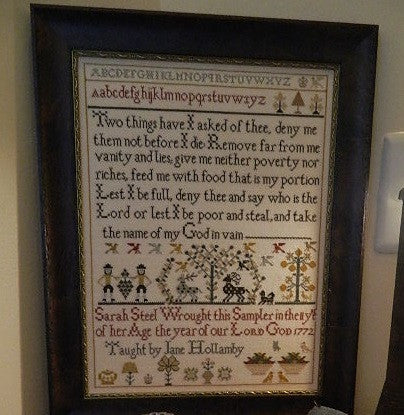 ABCDEFGHIJKLMNOPQRSTUVWXYZ
abcdefghijklmnopqrstuvwxyz
Two things have I asked of thee, deny me
them not before I die Remove far from me
vanity and lies, give me neither poverty nor
riches, feed me with food that is my portion
Lest I be full, deny thee and say who is the
Lord or lest I be poor and steal, and take
the name of my God in vain
Sarah Steel Wrought this Sampler in the 11 Yr
of her Age the year of our LORD GOD 1772
Taught by Jane Hollamby